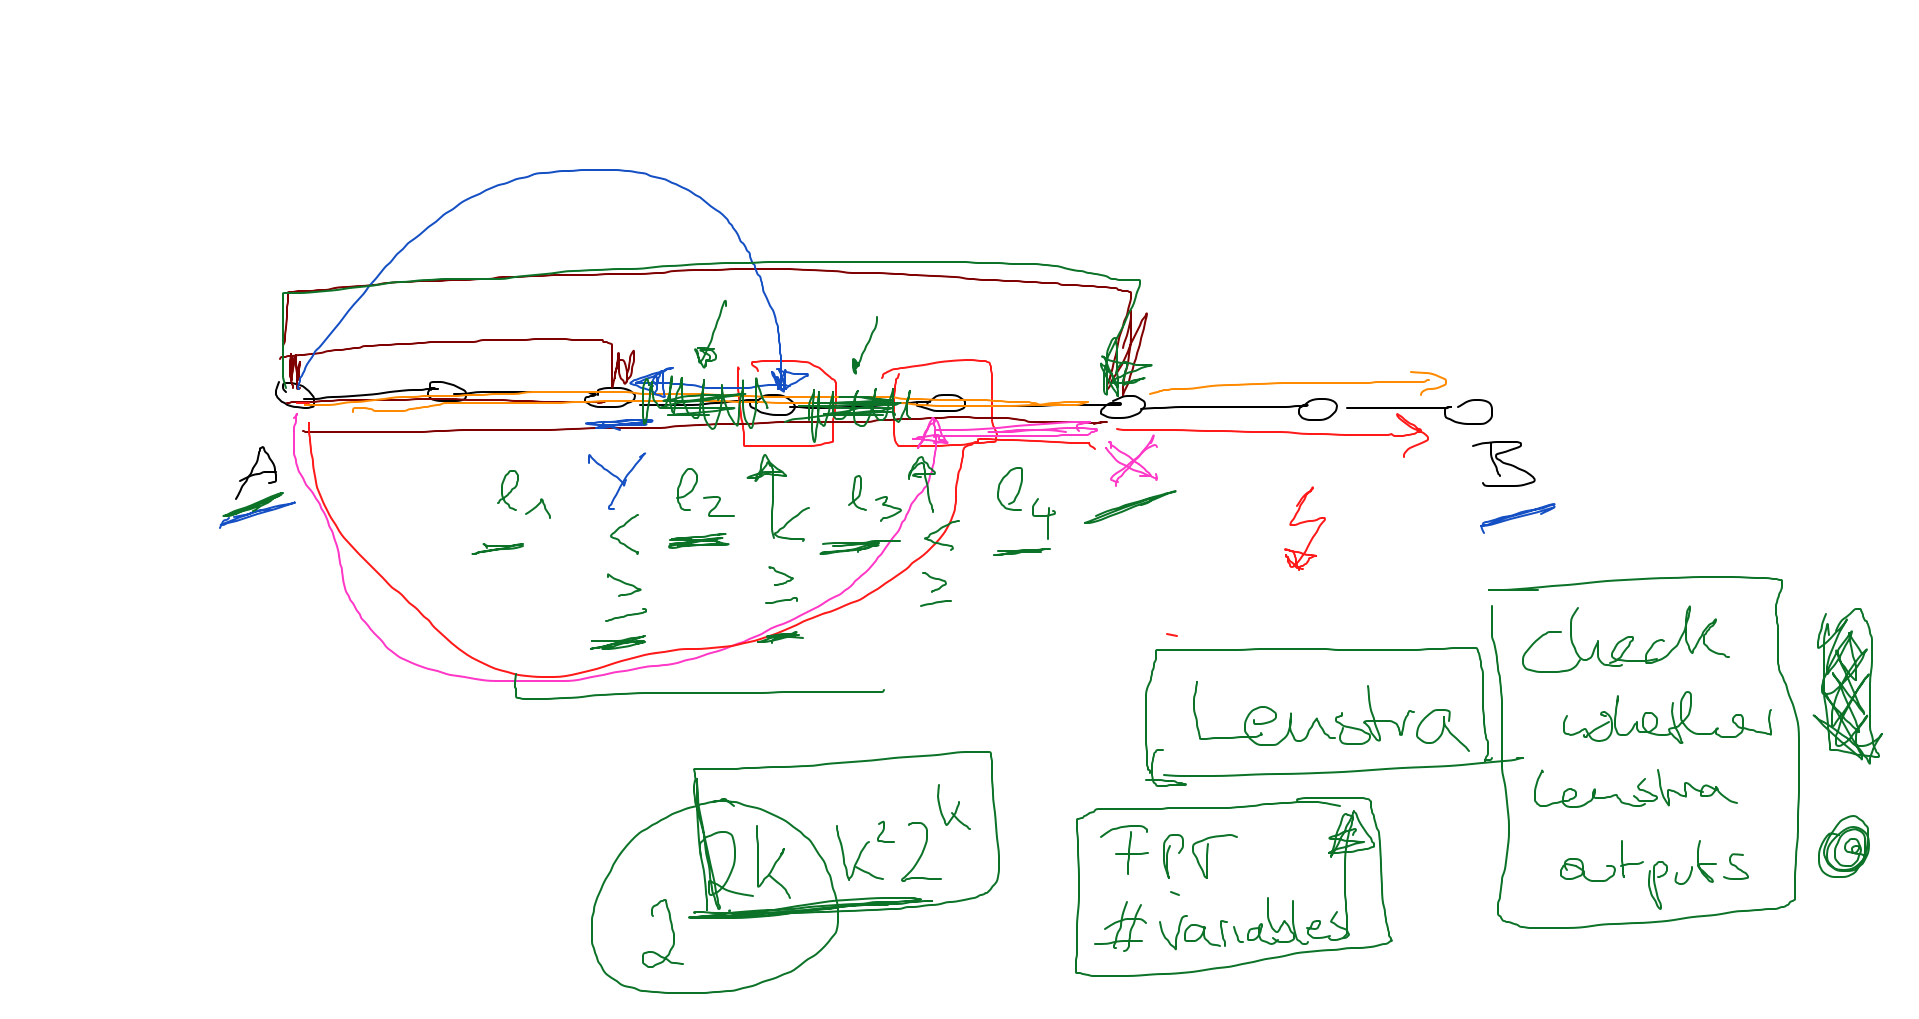 A Y X B
l1 l2 l3 l4
< < <
≥ ≥ ≥
Lenstra
check
whether
Lenstra
outputs
2 2k k² 2^k
FPT
#variables